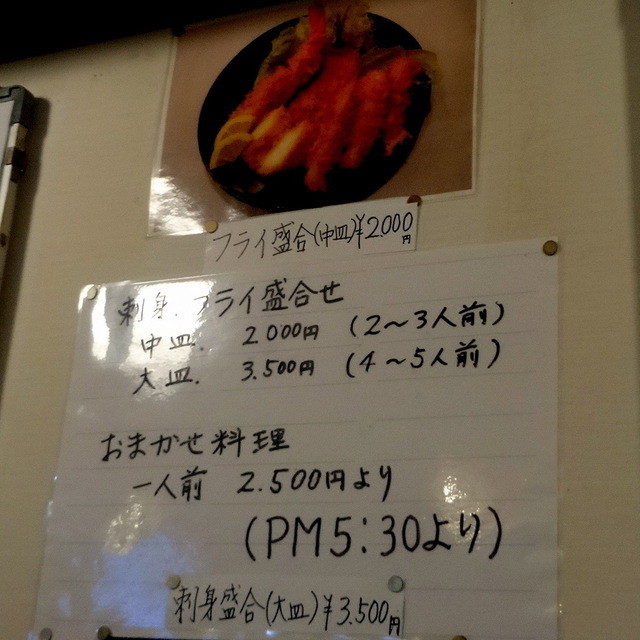 フライ盛合(中皿)¥2000円
刺身、フライ盛合せ
中皿. 2000円 (2〜3人前)
大皿. 3.500円 (4〜5人前)
おまかせ料理
一人前 2.500円より
(PM5:30より)
刺身盛合(大皿)¥3.500円